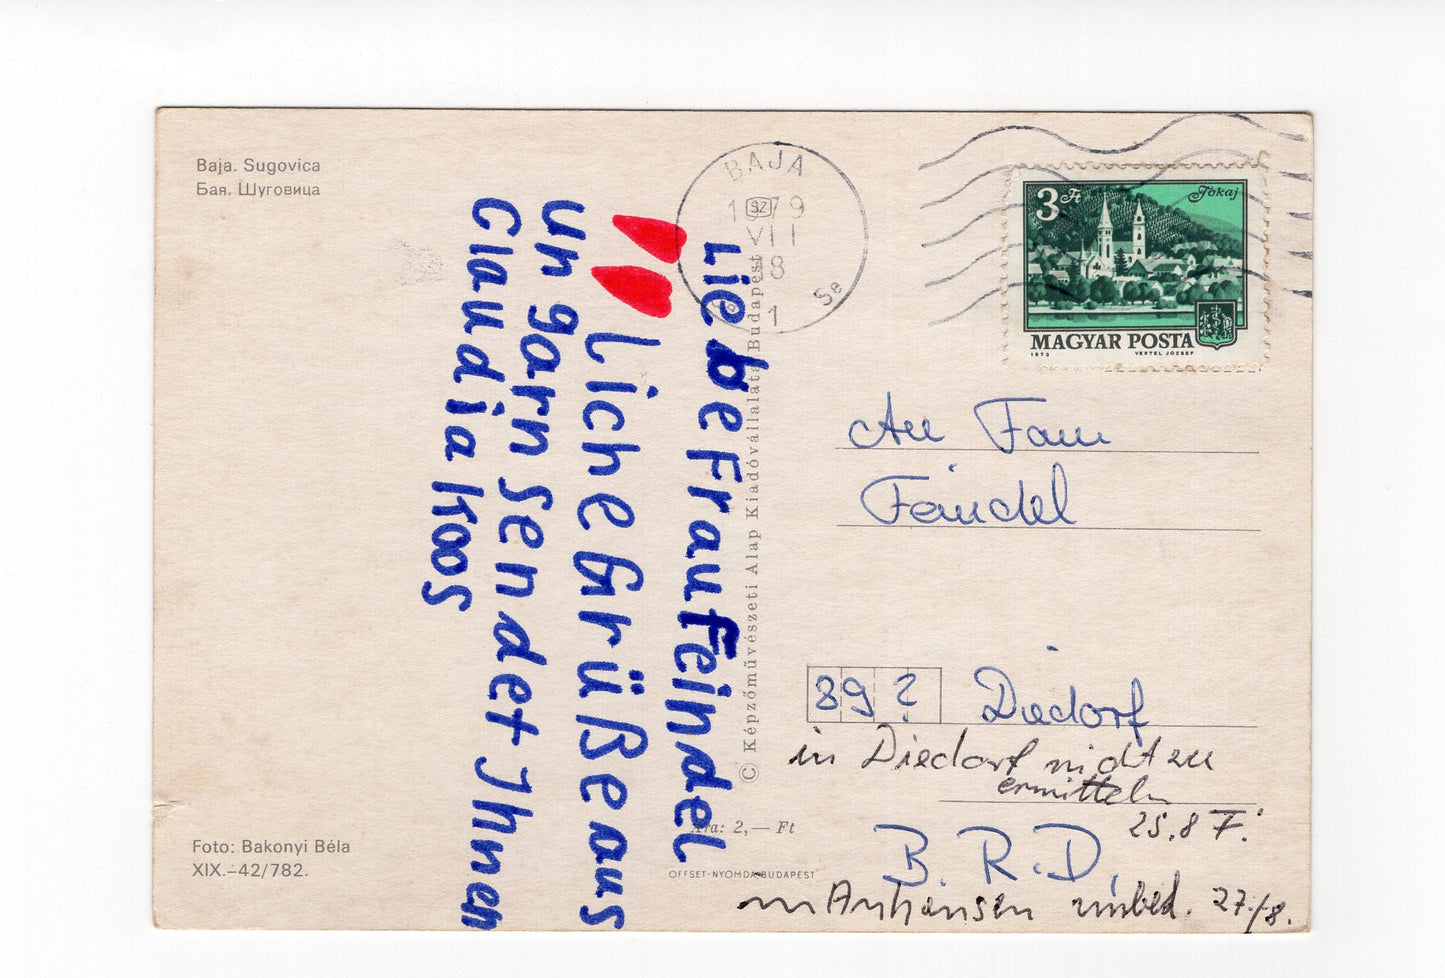 Baja. Sugovica
Бая. Шуговица
BAJA
1979
SZ
VII
18
1
3 Ft
Tokaj
MAGYAR POSTA
1973
VERTEL JÓZSEF
Liebe Frau Feindel
liche Grüße aus
Ungarn sendet Ihnen
Claudia Koos
© Képzőművészeti Alap Kiadóvállalata, Budapest
An Fam
Feindel
89? Diedorf
in Diedorf nicht zu
ermitteln
25.8 F.
B.R.D.
in Anhausen unbek. 27./8.
Ára: 2,— Ft
OFFSET-NYOMDA BUDAPEST
Foto: Bakonyi Béla
XIX.–42/782.